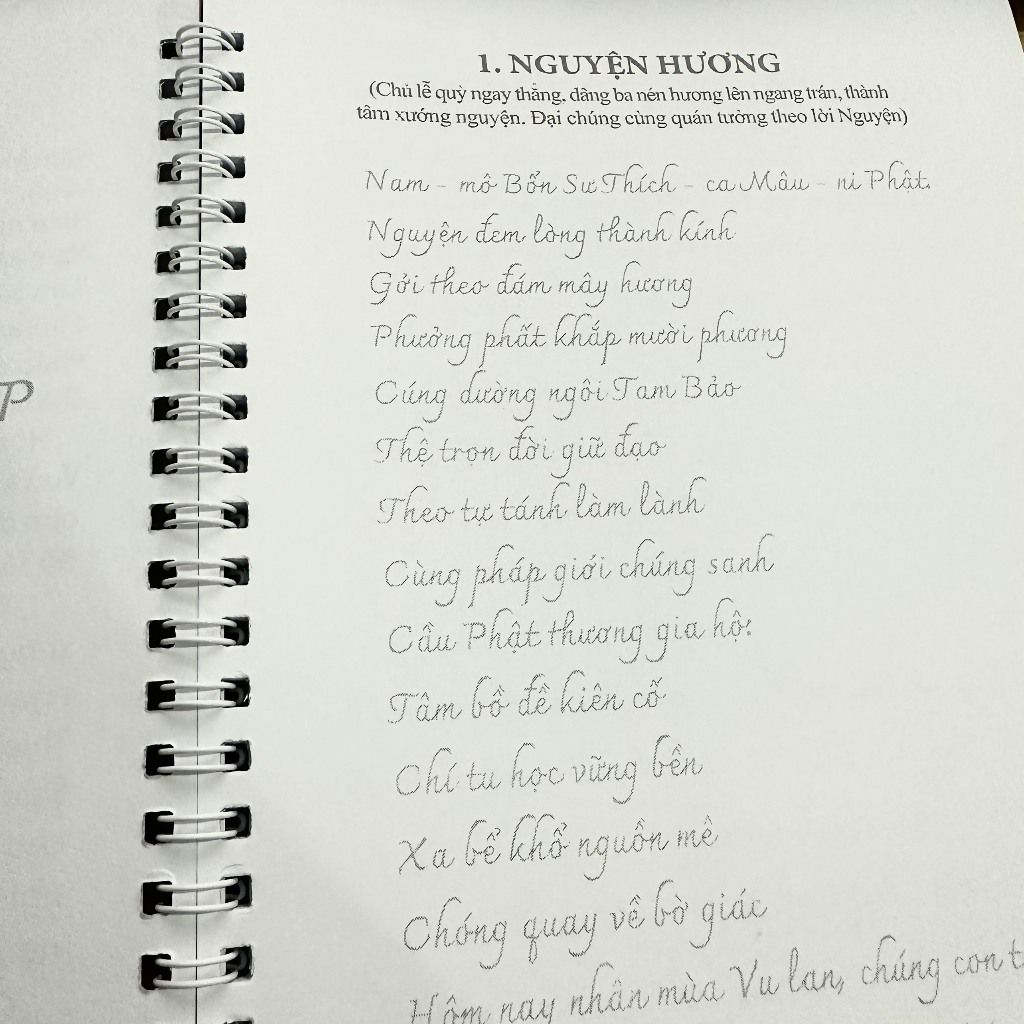 P
1. NGUYỆN HƯƠNG
(Chủ lễ quỳ ngay thẳng, dâng ba nén hương lên ngang trán, thành
tâm xướng nguyện. Đại chúng cùng quán tưởng theo lời Nguyện)
Nam - mô Bổn Sư Thích - ca Mâu - ni Phật.
Nguyện đem lòng thành kính
Gởi theo đám mây hương
Phưởng phất khắp mười phương
Cúng dường ngôi Tam Bảo
Thệ trọn đời giữ đạo
Theo tự tánh làm lành
Cùng pháp giới chúng sanh
Cầu Phật thương gia hộ:
Tâm bồ đề kiên cố
Chí tu học vững bền
Xa bể khổ nguồn mê
Chóng quay về bờ giác
Hôm nay nhân mùa Vu lan, chúng con